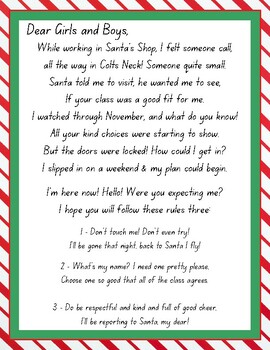 Dear Girls and Boys,
While working in Santa's Shop, I felt someone call,
all the way in Colts Neck! Someone quite small.
Santa told me to visit, he wanted me to see,
If your class was a good fit for me.
I watched through November, and what do you know!
All your kind choices were starting to show.
But the doors were locked! How could I get in?
I slipped in on a weekend & my plan could begin.
I'm here now! Hello! Were you expecting me?
I hope you will follow these rules three:
1 - Don't touch me! Don't even try!
I'll be gone that night, back to Santa I fly!
2 - What's my name? I need one pretty please,
Choose one so good that all of the class agrees.
3 - Do be respectful and kind and full of good cheer,
I'll be reporting to Santa, my dear!